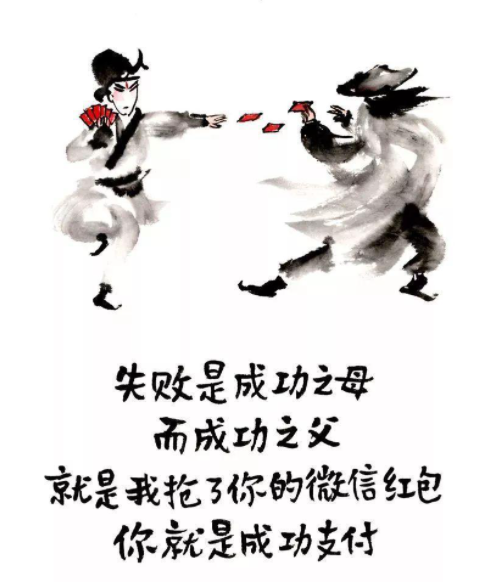 失败是成功之母
而成功之父
就是我抢了你的微信红包
你就是成功支付